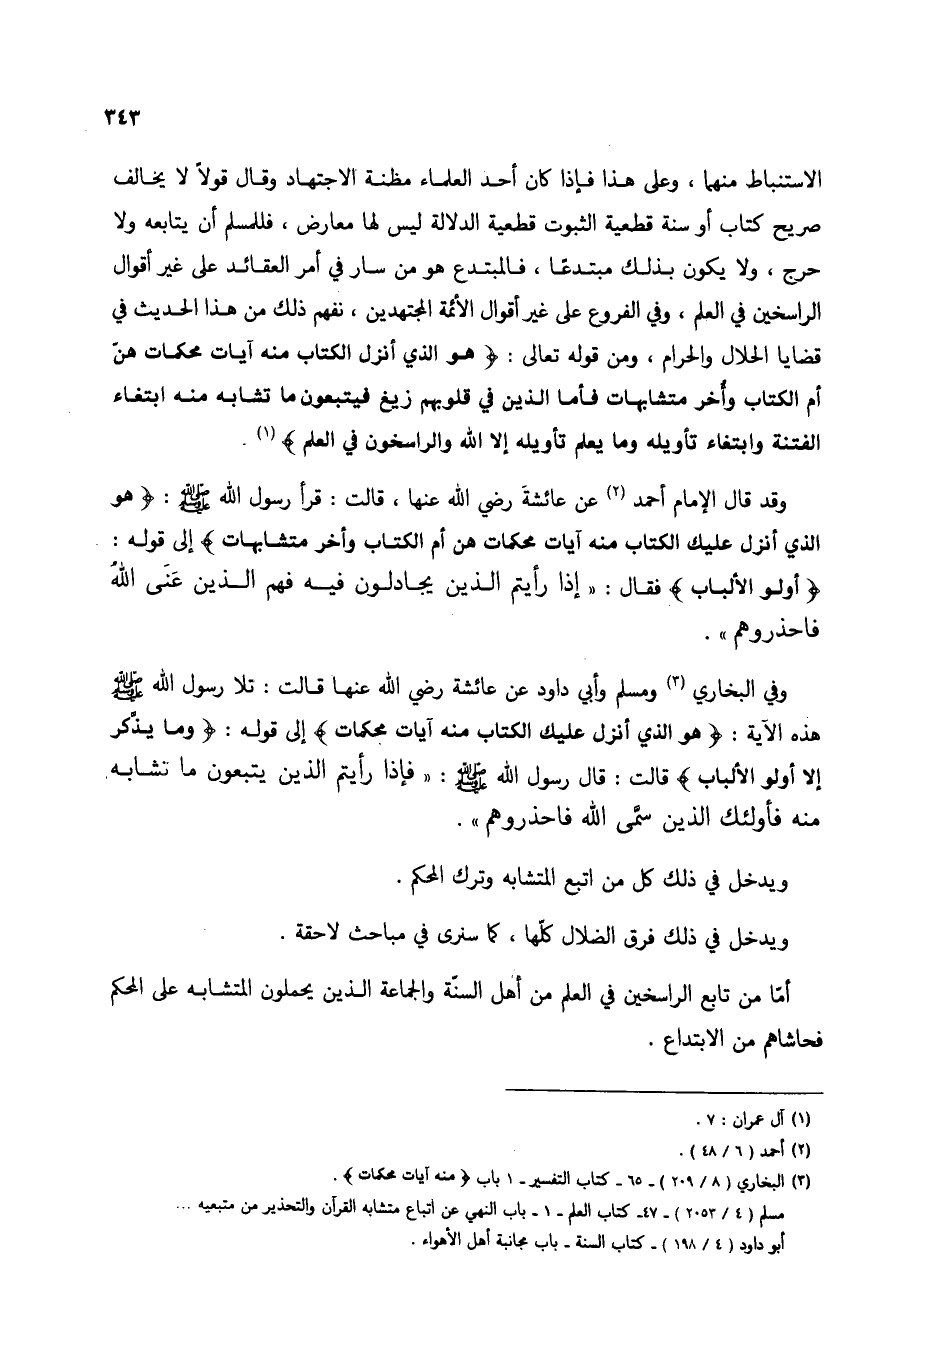 ٣٤٣
الاستنباط منها ، وعلى هذا فإذا كان أحد العلماء مظنة الاجتهاد وقال قولاً لا يخالف
صريح كتاب أو سنة قطعية الثبوت قطعية الدلالة ليس لها معارض ، فللمسلم أن يتابعه ولا
حرج ، ولا يكون بذلك مبتدعًا ، فالمبتدع هو من سار في أمر العقائد على غير أقوال
الراسخين في العلم ، وفي الفروع على غير أقوال الأئمة المجتهدين ، نفهم ذلك من هذا الحديث في
قضايا الحلال والحرام ، ومن قوله تعالى : ﴿ هو الذي أنزل الكتاب منه آيات محكمات هنّ
أم الكتاب وأُخر متشابهات فأما الذين في قلوبهم زيغ فيتبعون ما تشابه منه ابتغاء
الفتنة وابتغاء تأويله وما يعلم تأويله إلا الله والراسخون في العلم ﴾ (١) .
وقد قال الإمام أحمد (٢) عن عائشةَ رضي الله عنها ، قالت : قرأ رسول الله ﷺ : ﴿ هو
الذي أنزل عليك الكتاب منه آيات محكمات هن أم الكتاب وأخر متشابهات ﴾ إلى قوله :
﴿ أولو الألباب ﴾ فقال : « إذا رأيتم الذين يجادلون فيه فهم الذين عَنَى اللهُ
فاحذروهم » .
وفي البخاري (٣) ومسلم وأبي داود عن عائشة رضي الله عنها قالت : تلا رسول الله ﷺ
هذه الآية : ﴿ هو الذي أنزل عليك الكتاب منه آيات محكمات ﴾ إلى قوله : ﴿ وما يذَّكر
إلا أولو الألباب ﴾ قالت : قال رسول الله ﷺ : « فإذا رأيتم الذين يتبعون ما تشابه
منه فأولئك الذين سمَّى الله فاحذروهم » .
ويدخل في ذلك كل من اتبع المتشابه وترك المحكم .
ويدخل في ذلك فرق الضلال كلّها ، كما سنرى في مباحث لاحقة .
أمّا من تابع الراسخين في العلم من أهل السنّة والجماعة الذين يحملون المتشابه على المحكم
فحاشاهم من الابتداع .
(١) آل عمران : ٧ .
(٢) أحمد ( ٦ / ٤٨ ) .
(٣) البخاري ( ٨ / ٢٠٩ ) ـ ٦٥ ـ كتاب التفسير ـ ١ باب ﴿ منه آيات محكمات ﴾ .
مسلم ( ٤ / ٢٠٥٣ ) ـ ٤٧ـ كتاب العلم ـ ١ ـ باب النهي عن اتباع متشابه القرآن والتحذير من متبعيه ...
أبو داود ( ٤ / ١٩٨ ) ـ كتاب السنة ـ باب مجانبة أهل الأهواء .